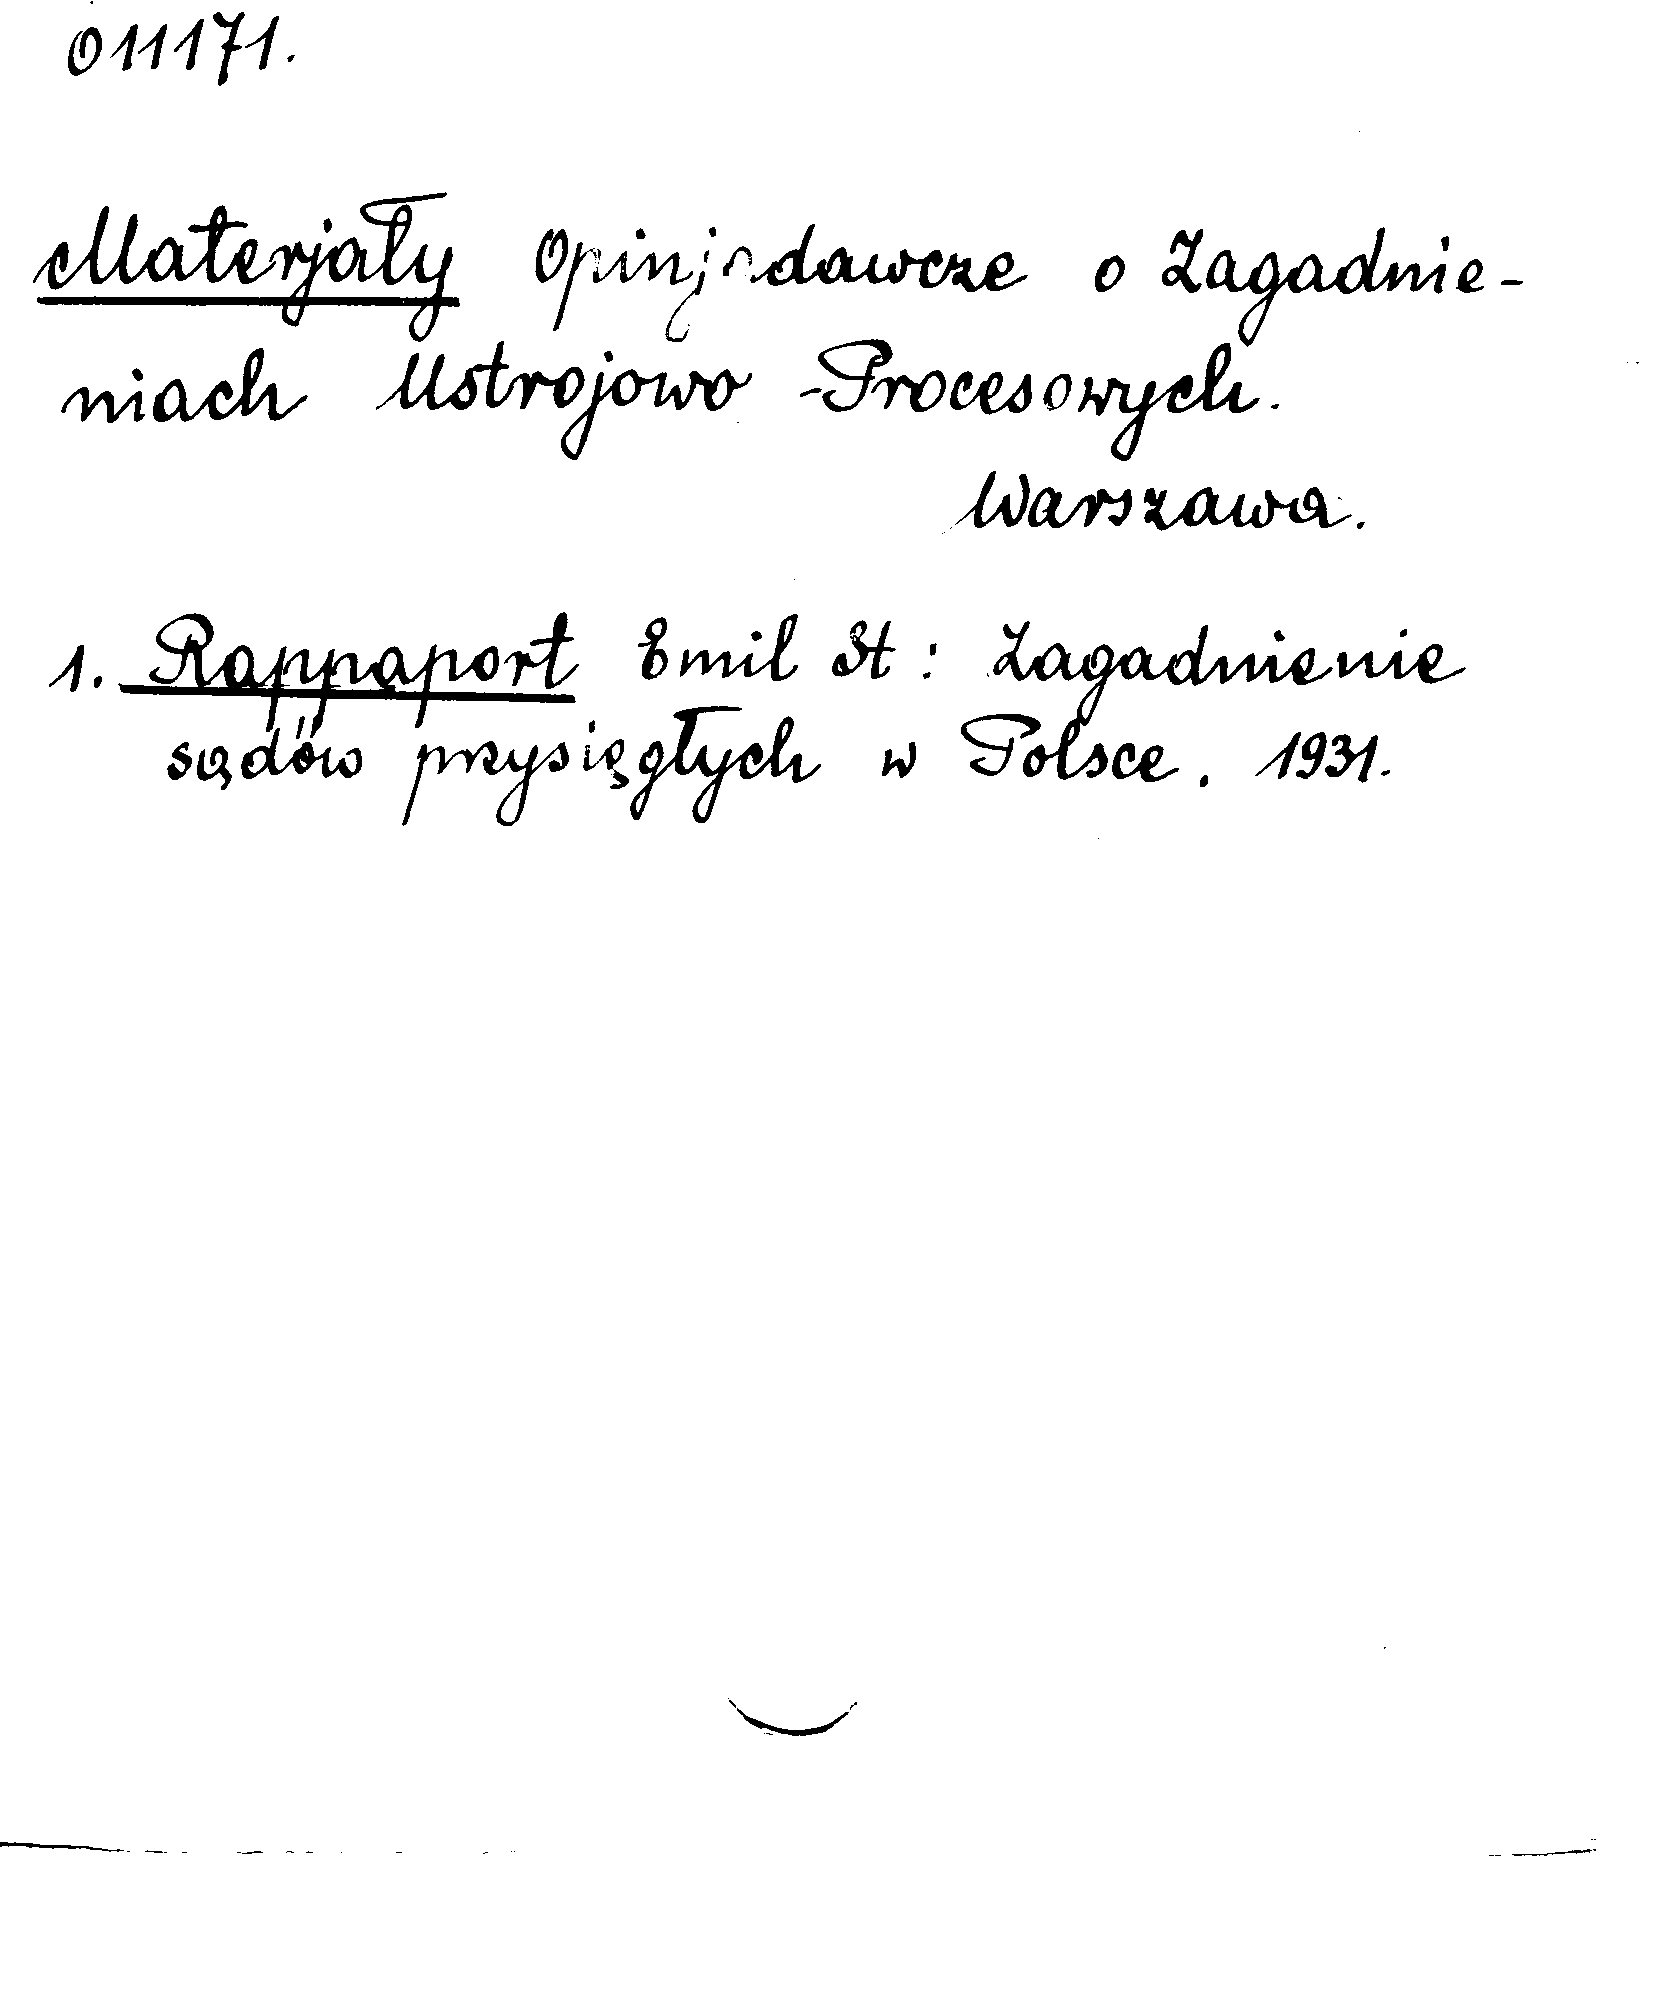 011171.
Materjały Opinjodawcze o Zagadnie-
niach Ustrojowo-Procesowych.
Warszawa.
1. Rappaport Emil St: Zagadnienie
sądów przysięgłych w Polsce. 1931.